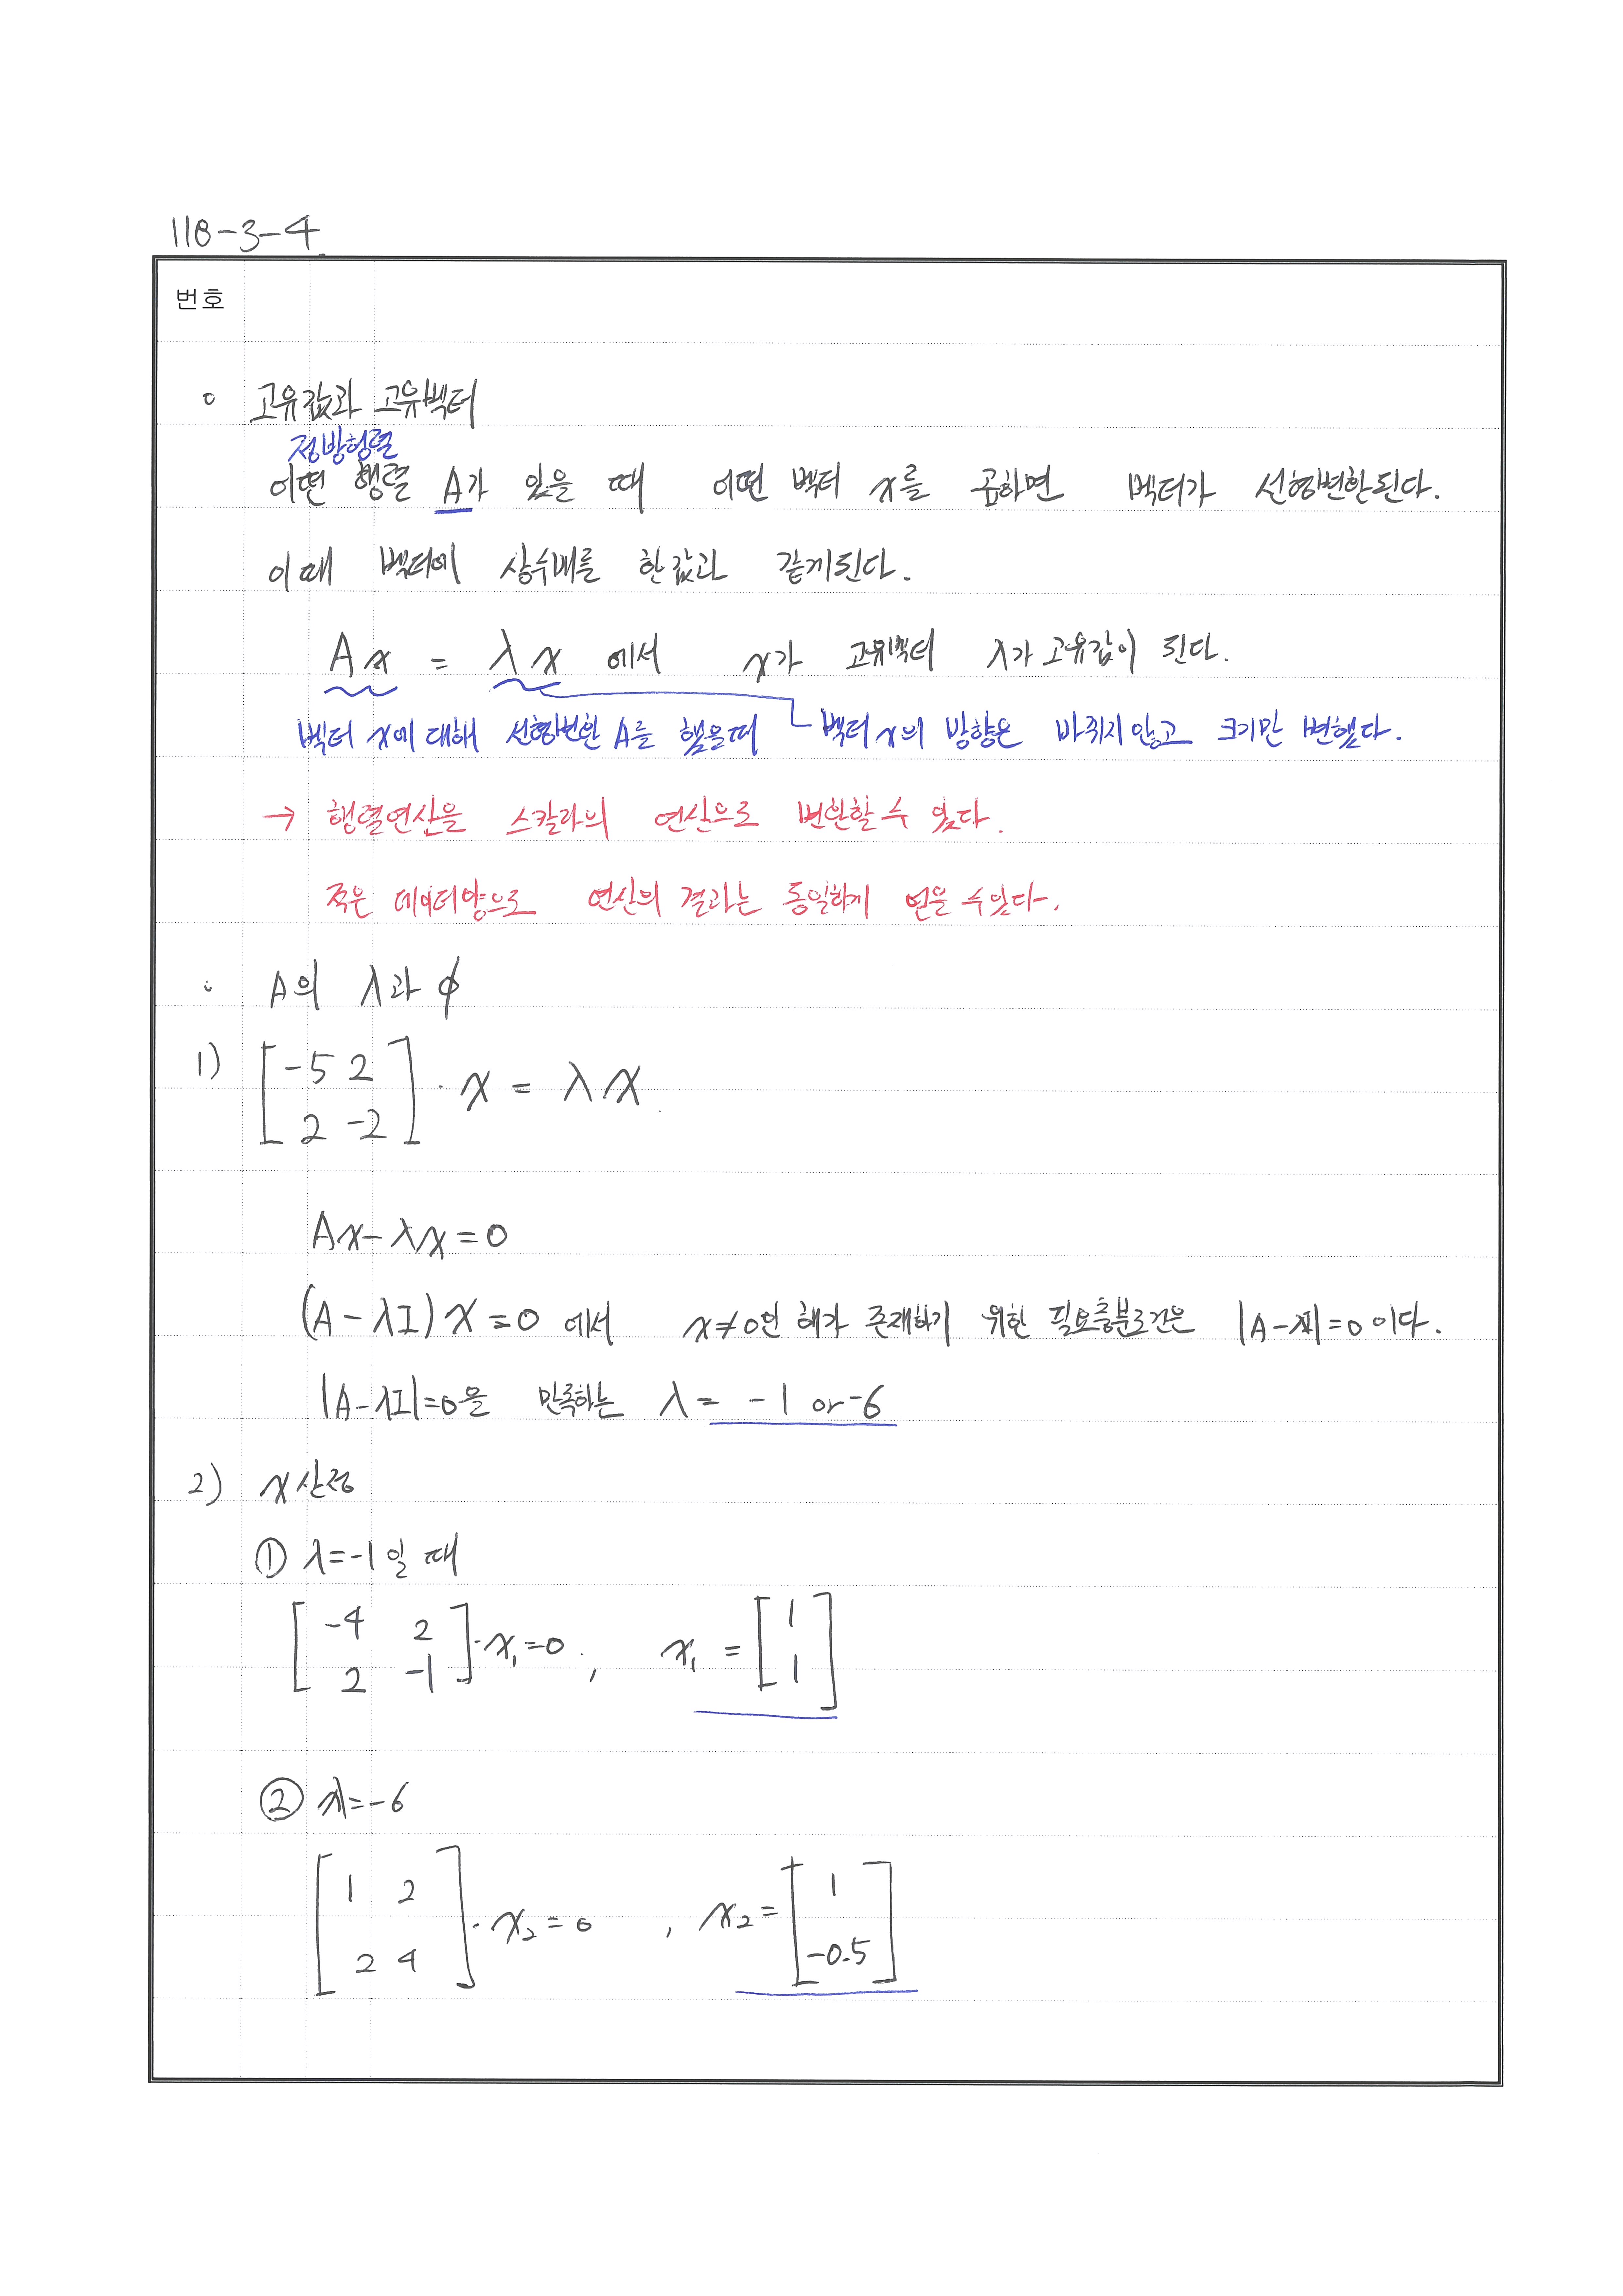 118-3-4
번호
o 고유값과 고유벡터
정방행렬
어떤 행렬 A가 있을 때 어떤 벡터 x를 곱하면 벡터가 선형변환된다.
이때 벡터에 상수배를 한값과 같게된다.
Ax = λx 에서 x가 고유벡터 λ가 고유값이 된다.
벡터 x에 대해 선형변환 A를 했을때 벡터 x의 방향은 바뀌지않고 크기만 변했다.
→ 행렬연산을 스칼라의 연산으로 변환할 수 있다.
적은 데이터양으로 연산의 결과는 동일하게 얻을 수 있다.
o A의 λ과 ϕ
1) [-5 2
2 -2] · x = λx
Ax-λx=0
(A-λI)x=0 에서 x≠0인 해가 존재하기 위한 필요충분조건은 |A-λI|=0 이다.
|A-λI|=0을 만족하는 λ= -1 or -6
2) x산정
① λ=-1 일 때
[-4 2
2 -1]·x₁=0, x₁ = [1
1]
② λ=-6
[1 2
2 4]·x₂=0 , x₂= [1
-0.5]